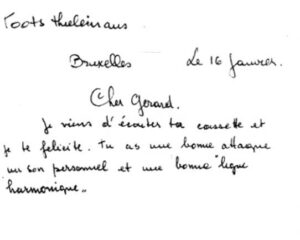 Toots Thielemans
Bruxelles Le 16 Janvier.
Cher Gerard.
Je viens d'écouter ta cassette et
je te felicite. Tu as une bonne attaque
un son personnel et une bonne "ligne
harmonique"..